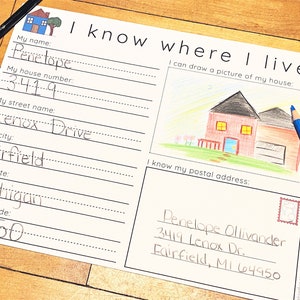 I know where I live
My name:
Penelope
My house number:
3419
My street name:
Lenox Drive
city:
Fairfield
Michigan
I can draw a picture of my house:
I know my postal address:
Penelope Ollivander
3419 Lenox Dr.
Fairfield, MI 64950